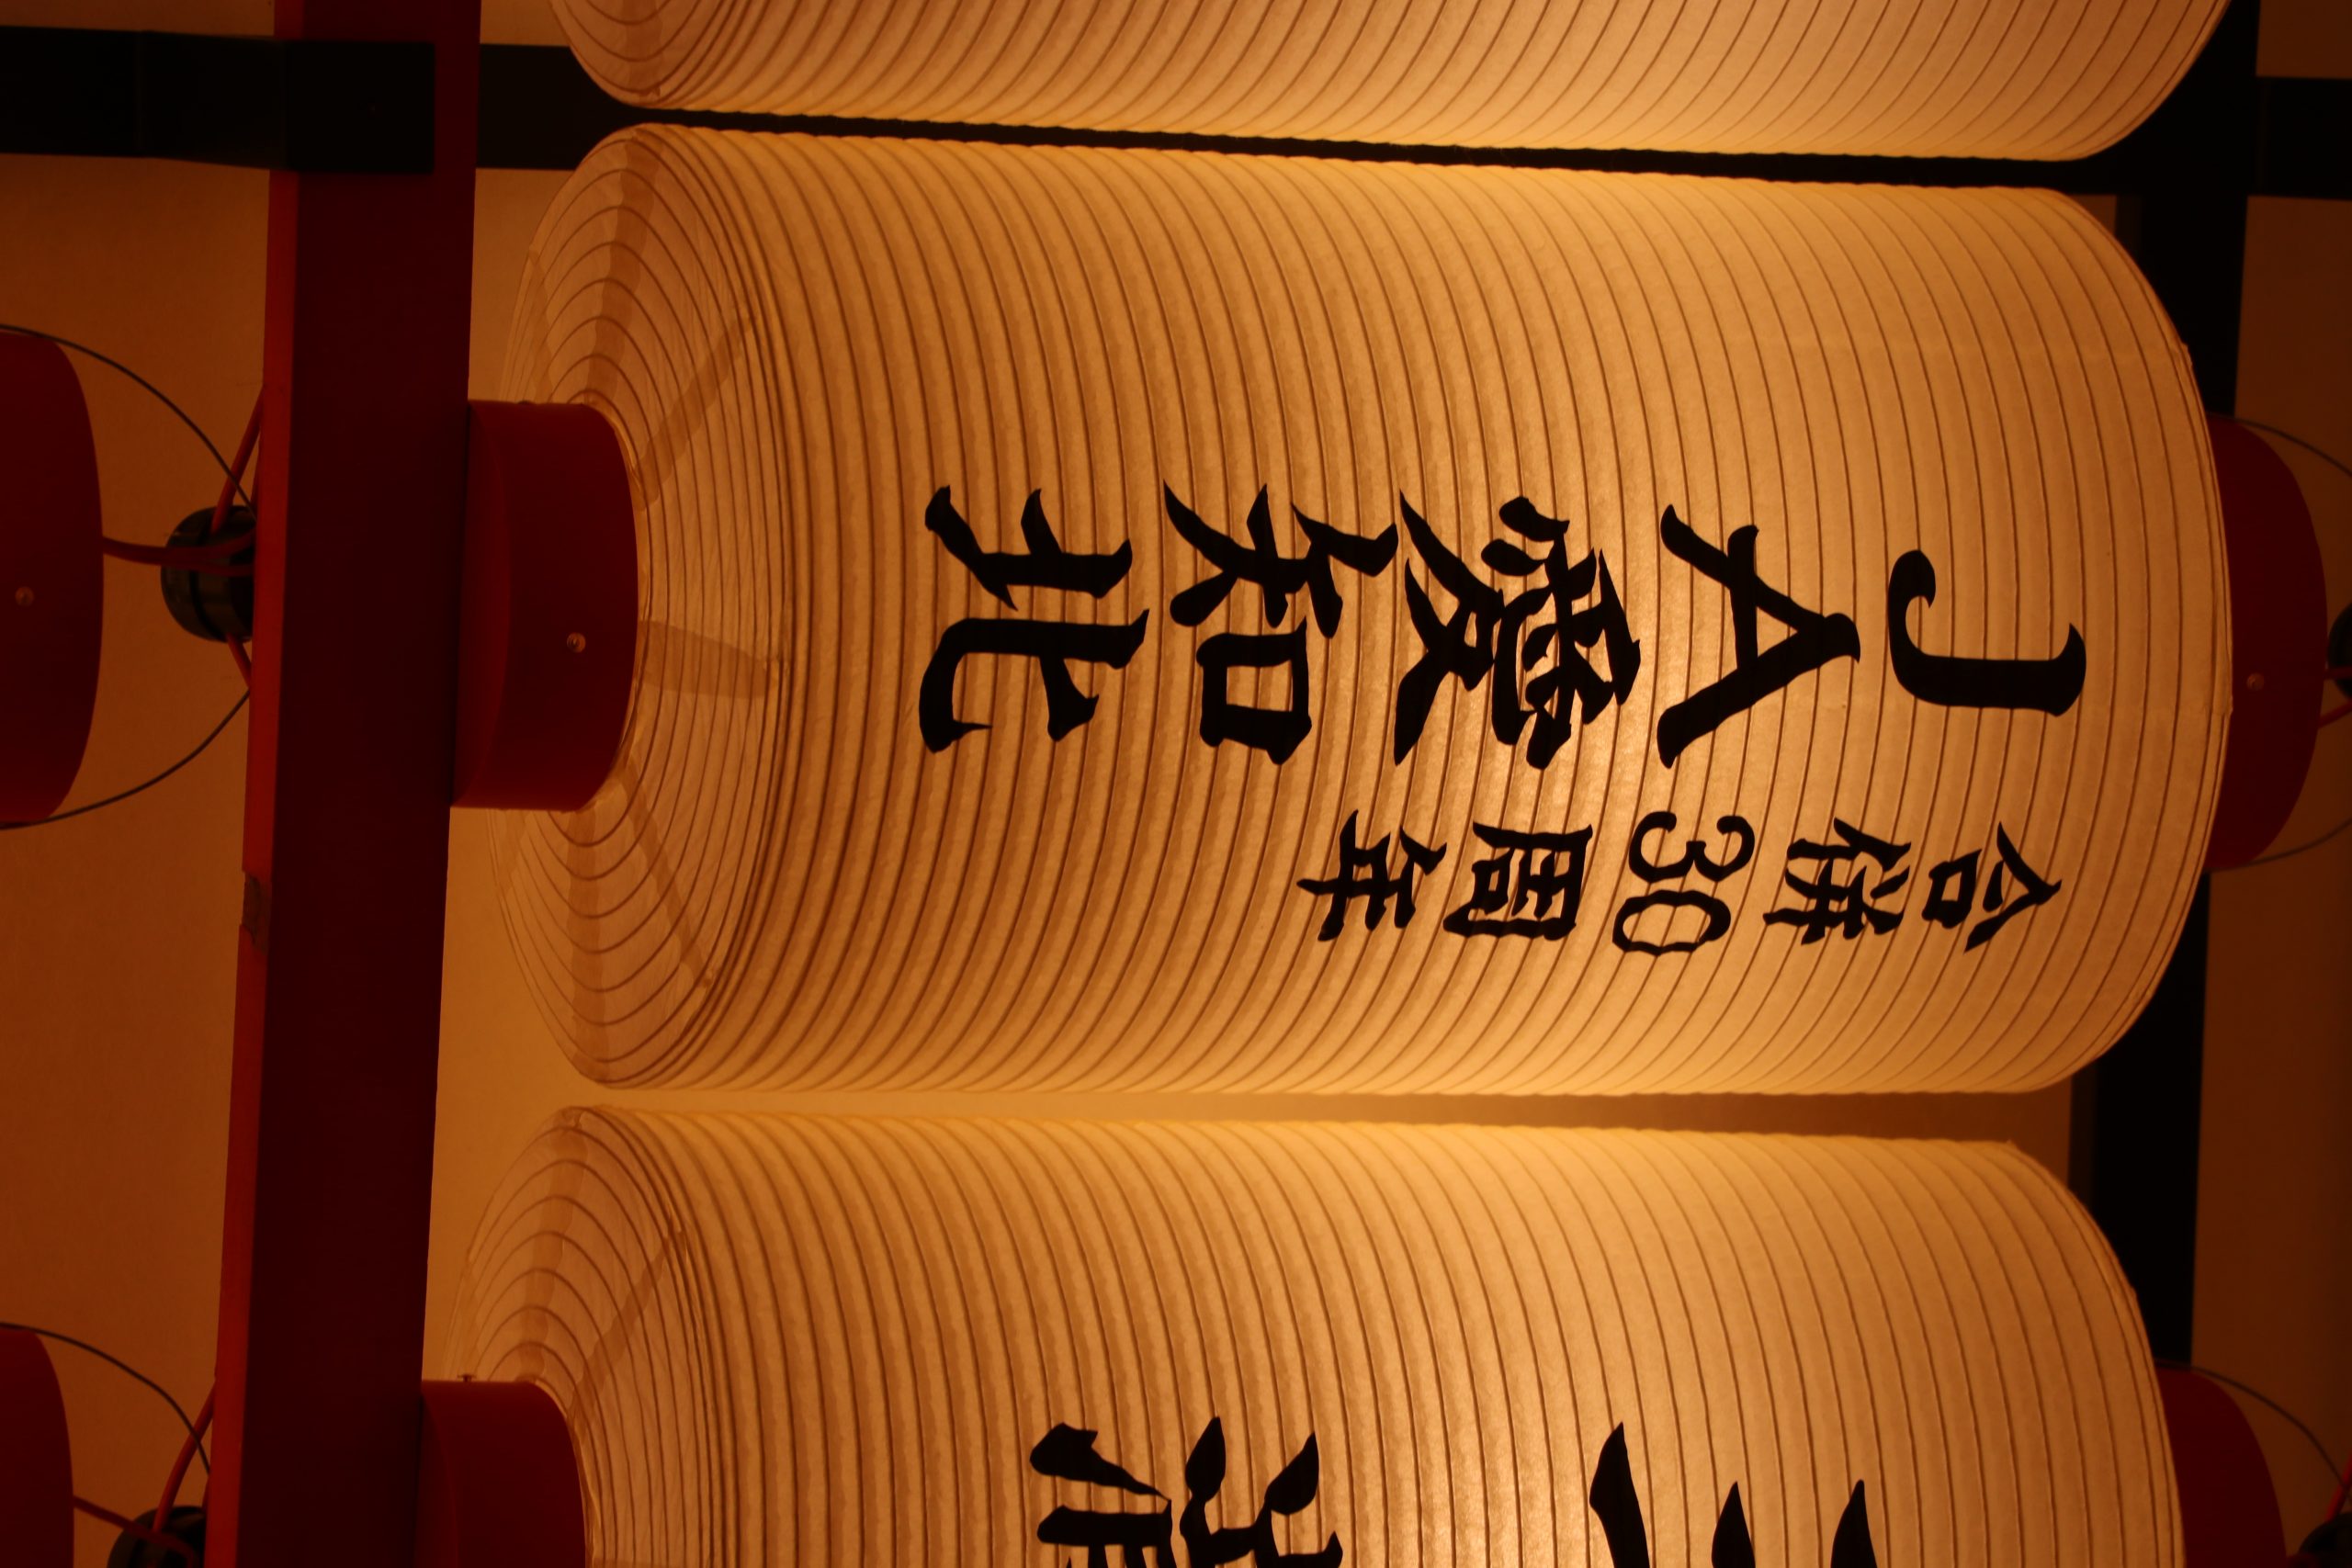 合併30周年
JA愛知北